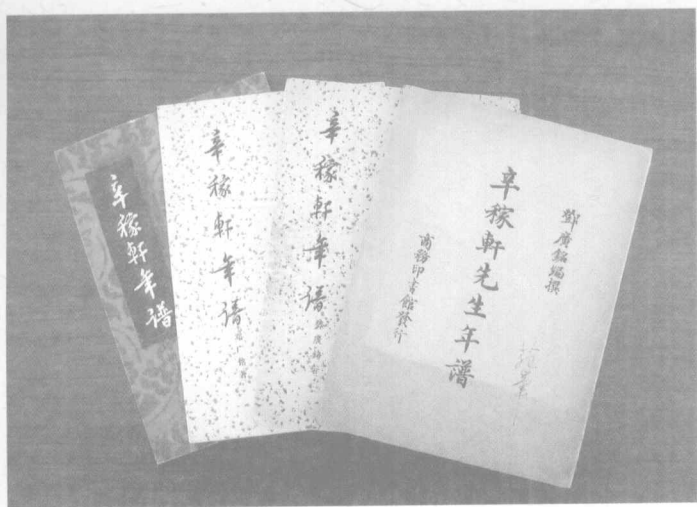 辛稼軒年譜
辛稼軒年譜
鄧廣銘著
辛稼軒年譜
鄧廣銘著
鄧廣銘編撰
辛稼軒先生年譜
商務印書館發行